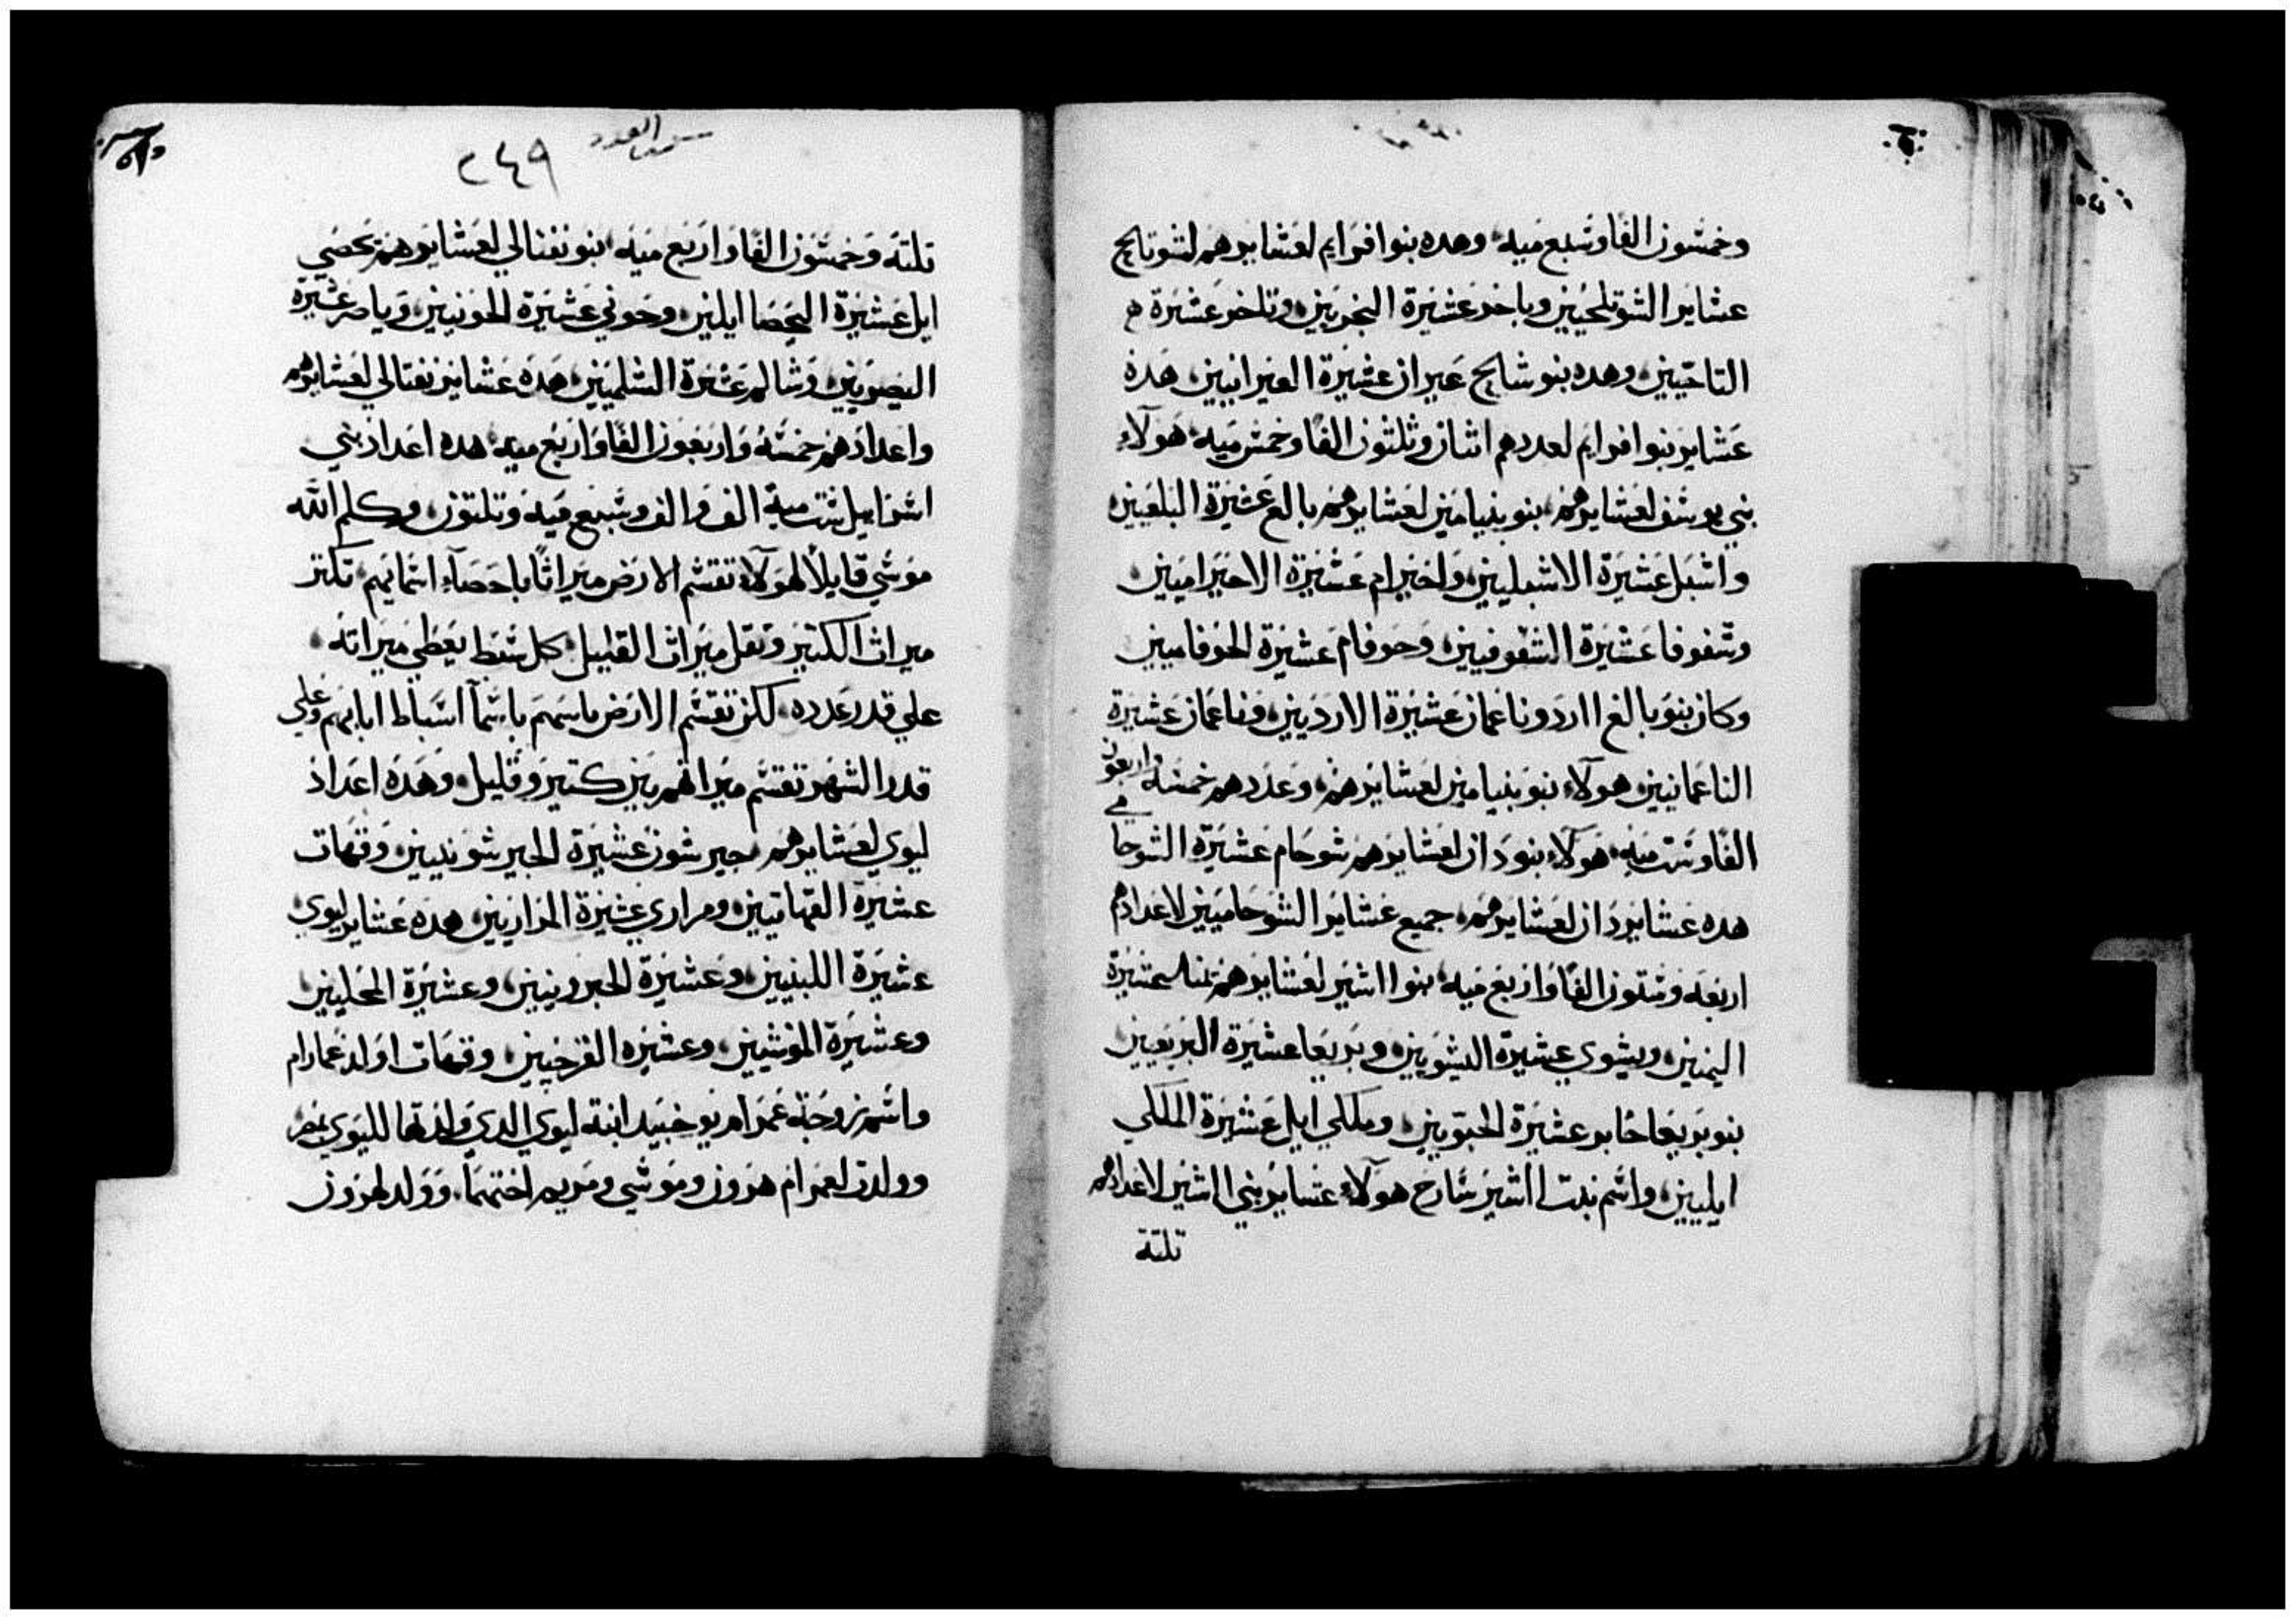 وخمسون الفا وسبع ميه وهده بنوا افرايم لعشايرهم لشوتالح
عشاير الشوتلحيين وباخر عشيرة البخريين وتلخر عشيرة
التاخيين وهده بنو شالح عيران عشيرة العيرانيين هده
عشاير بنوا افرايم لعددهم اثنان وثلثون الفا وخمس ميه هولاء
بني يوسف لعشايرهم بنو بنيامين لعشايرهم بالع عشيرة البلعيين
واشبل عشيرة الاشبليين واخيرام عشيرة الاخيراميين
وشفوفا عشيرة الشفوفيين وحوفام عشيرة الحوفاميين
وكان بنو بالع ارد وناعمان عشيرة الارديين وناعمان عشيرة
الناعمانيين هولاء بنو بنيامين لعشايرهم وعددهم خمسه واربعون
الفا وست ميه هولاء بنو دان لعشايرهم شوحام عشيرة الشوحامي
هده عشاير دان لعشايرهم جميع عشاير الشوحاميين لاعدادهم
اربعه وستون الفا واربع ميه بنوا اشير لعشايرهم يمنا عشيرة
اليمنين ويشوي عشيرة اليشويين وبريعا عشيرة البريعيين
بنو بريعا حابر عشيرة الحبريين وملكي ايل عشيرة الملكي
ايليين واسم بنت اشير سارح هولاء عشاير بني اشير لاعدادهم
تلتة
سفر العدد
٢٤٩
تلتة وخمسون الفا واربع ميه بنو نفتالي لعشايرهم يحصي
ايل عشيرة اليحصا ايلين وحوني عشيرة الحونيين وياصر عشيرة
اليصريين وشالم عشيرة الشلميين هده عشاير نفتالي لعشايرهم
واعدادهم خمسة واربعون الفا واربع ميه هده اعداد بني
اسرايل ست مية الف والف وسبع ميه وتلتون وكلم الله
موسي قايلا لهولاء تقسم الارض ميراثا باحصاء اسمايهم تكتر
ميراث الكتير وتقل ميراث القليل كل سبط يعطي ميراته
علي قدر عدده لكن تقسم الارض باسهم باسما اسباط ابايهم وعلي
قدر السهم تقسم ميراثهم بين كتير وقليل وهده اعداد
ليوي لعشايرهم جيرشون عشيرة الجيرشونيين وقهات
عشيرة القهاتيين ومراري عشيرة المراريين هده عشاير ليوي
عشيرة اللبنيين وعشيرة الحبرونيين وعشيرة المحليين
وعشيرة الموشيين وعشيره القرحيين وقهات اولد عمرام
واسم زوجة عمرام يوخبيد ابنة ليوي الدي ولدتها لليوي بمصر
وولدت لعمرام هرون وموسي ومريم اختهما وولد لهرون